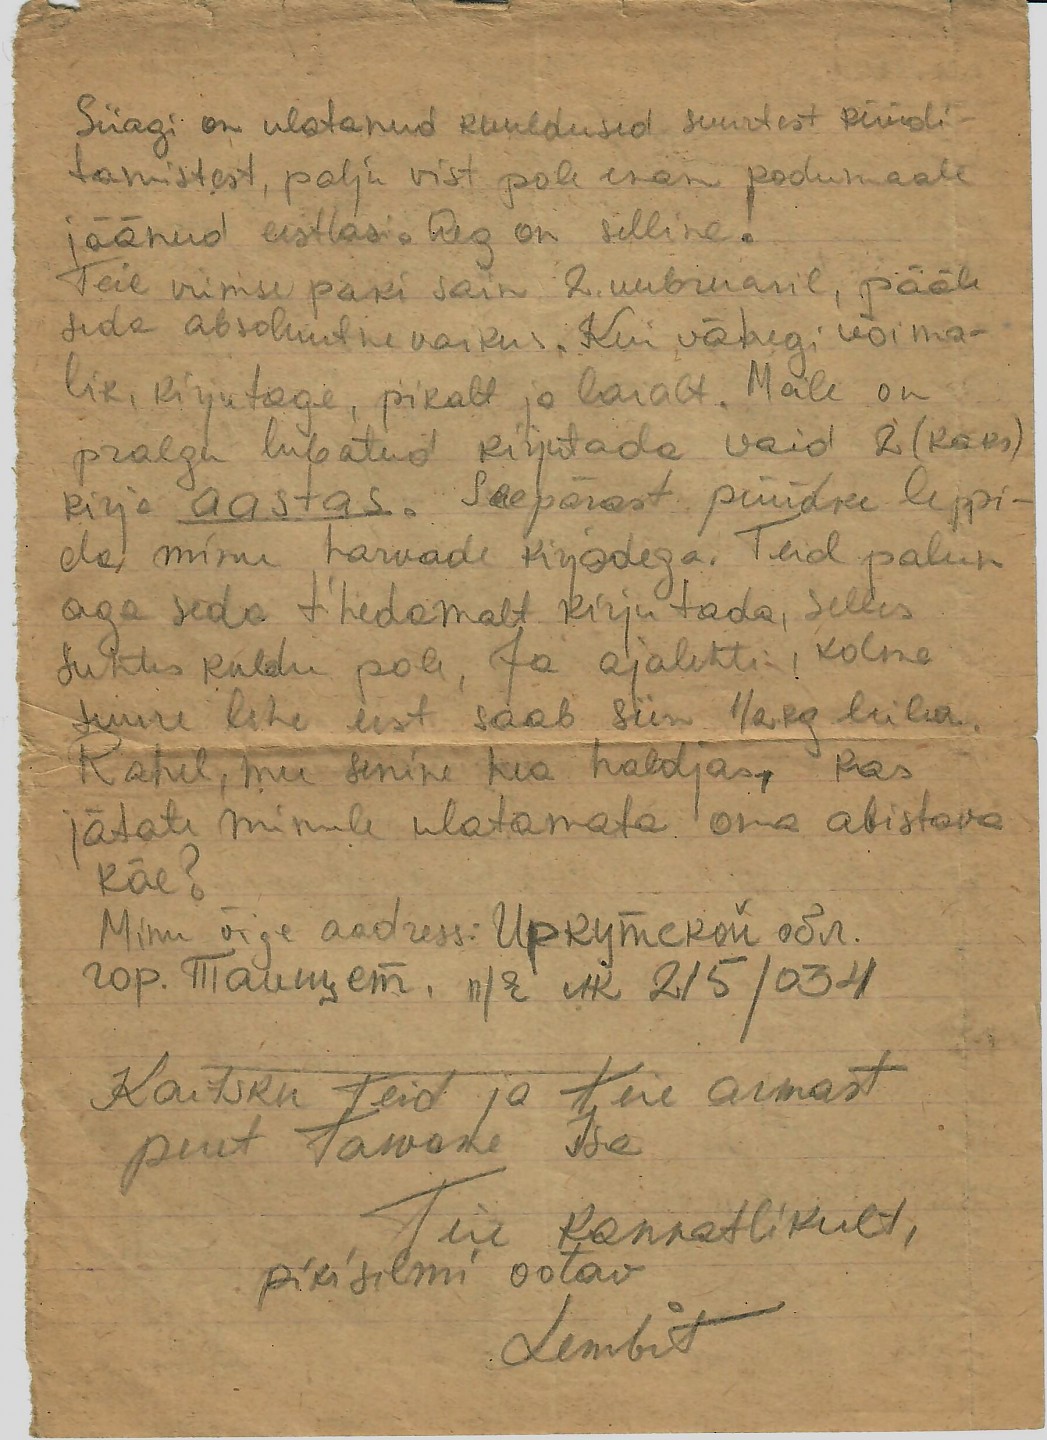 Siiagi on ulatanud kuuldused suurtest küüdi-
tamistest, palju vist pole enam kodumaale
jäänud eestlasi. Aeg on selline!
Teie viimse paki sain 2. veebruaril, pääle
seda absoluutne vaikus. Kui vähegi võima-
lik, kirjutage, pikalt ja laialt. Meile on
praegu lubatud kirjutada vaid 2 (kaks)
kirja aastas. Seepärast püüdke leppi-
da minu harvade kirjadega. Teid palun
aga seda tihedamalt kirjutada, selles
suhtes keeldu pole, Ja ajalehti, kolme
suure lehe eest saab siin 1/2 kg leiba.
Rahel, mu senine hea haldjas, kas
jätate minule ulatamata oma abistava
käe?
Minu õige aadress: Иркутской обл.
гор. Тайшет, п/я ЛК 215/034
Kaitsku Teid ja Teie armast
peret Taevane Isa
Teie kannatlikult,
pikisilmi ootav
Lembit